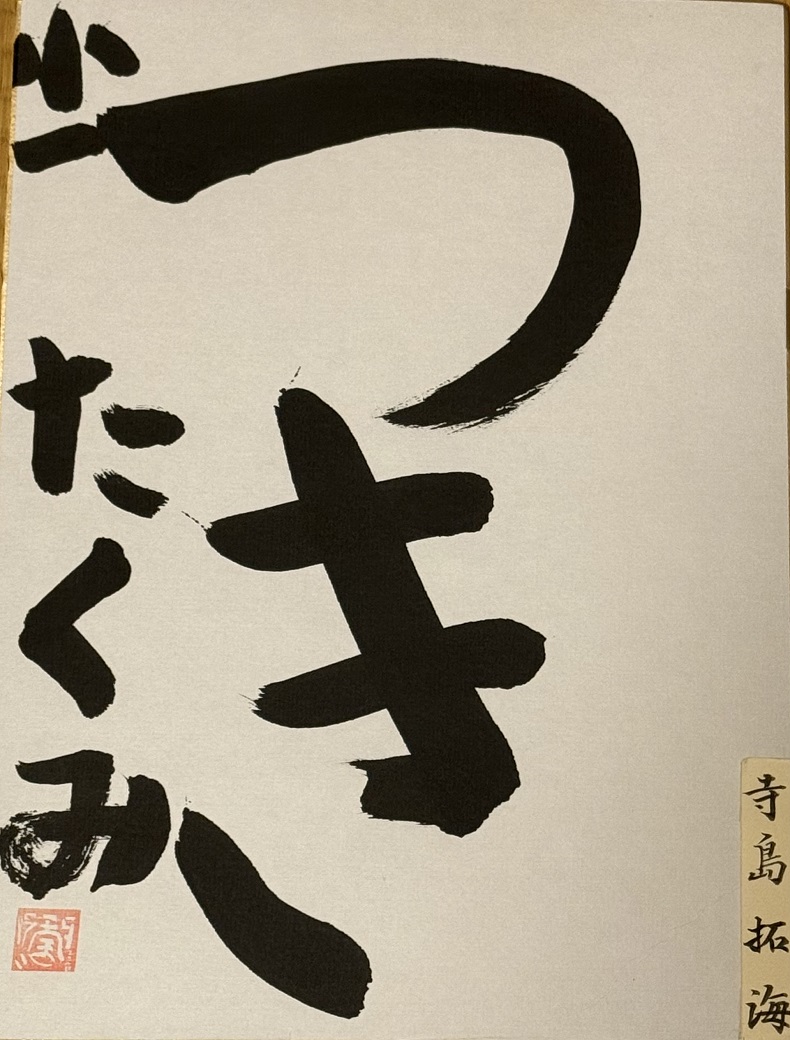 寺島拓海
つき
小一 たくみ